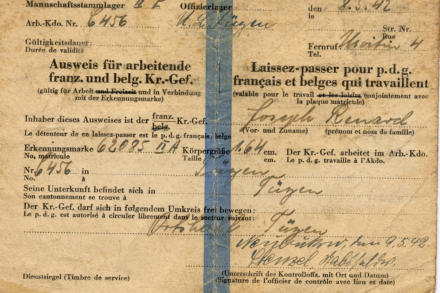 Mannschaftsstammlager II Offizierlager den 8.5.42
Arb.-Kdo. Nr. 6456 Str. Nr.
Rue
Gültigkeitsdauer: Fernruf 4
Durée de validité
Ausweis für arbeitende Laissez-passer pour p.d.g.
franz. und belg. Kr.-Gef. français et belges qui travaillent
(gültig für Arbeit und Freizeit und in Verbindung (valable pour le travail et les loisirs conjointement avec
mit der Erkennungsmarke) la plaque matricule)
franz.
Inhaber dieses Ausweises ist der belg. Kr.-Gef. Joseph Renard
Le détenteur de ce laissez-passer est le p.d.g. français belge (Vor- und Zuname) (prénom et nom de famille)
Erkennungsmarke 62085 II A Körpergröße 1.64 cm. Der Kr.-Gef. arbeitet im Arb.-Kdo.
No. matricule Taille cm. Le p.d.g. travaille à l'Akdo.
Nr. 6456 in
No. à
Seine Unterkunft befindet sich in
Son cantonnement se trouve à
Der Kr.-Gef. darf sich in folgendem Umkreis frei bewegen:
Le p.d.g. est autorisé à circuler librement dans le secteur suivant:
den 9.5.42
Dienstsiegel (Timbre de service) (Unterschrift des Kontrolloffz. mit Ort und Datum)
(Signature de l'officier de contrôle avec lieu et date)